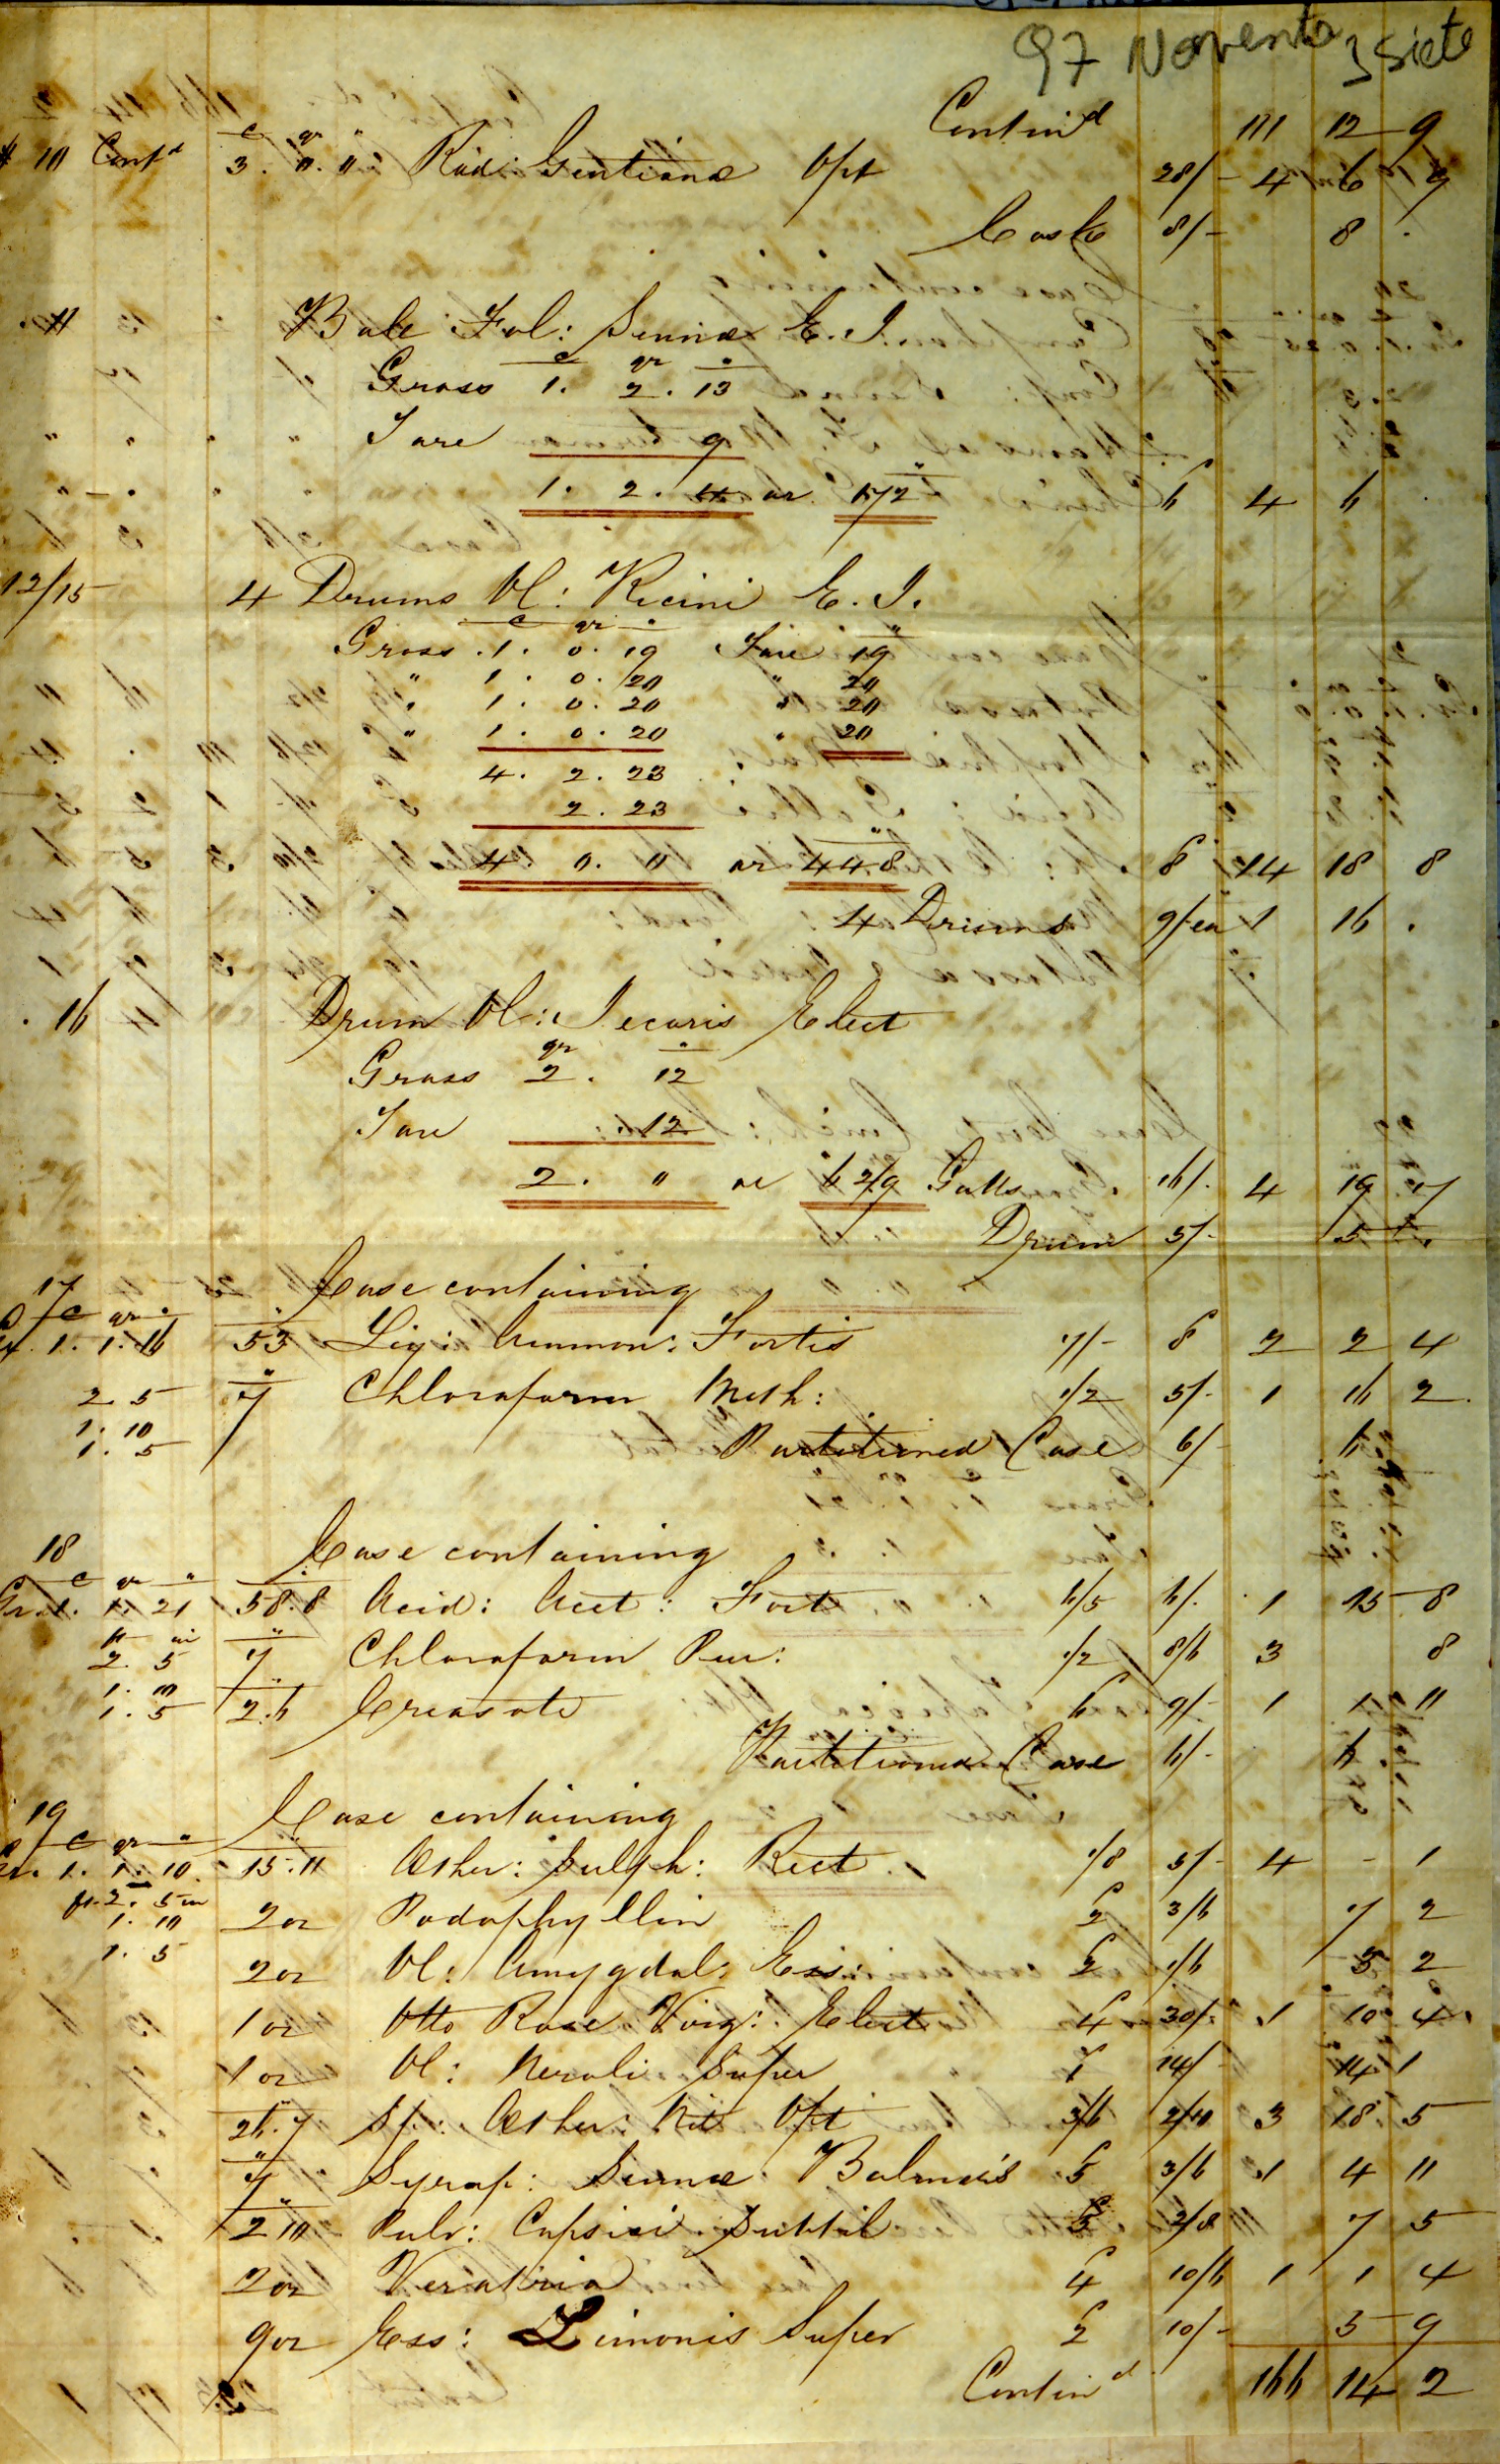 97 Noventa y siete
Contin^d 111 12 9
# 10 Cont^d 3. 0. 0 Rad: Gentianæ Opt 28/- 4 6 9
Cask 8/- 8 .
Bale Fol: Sennæ E. I.
Gross 1. 2. 13
Tare 9
1. 2. 4 or 172 6 4 6 .
12/15 4 Drums Ol: Ricini E. I.
Gross 1. 0. 19 Tare 19
" 1. 0. 20 " 20
" 1. 0. 20 " 20
" 1. 0. 20 " 20
4. 2. 23
2. 23
4. 0. 0 or 448 8 14 18 8
4 Drums 9/ea 1 16 .
. 16 Drum Ol: Jecoris Elect
Gross 2. 12
Tare 12
2. " or 6 2/9 Galls 16/. 4 19 7
Drum 5/- 5 .
17 Case containing
c qr "
Gr. 1. 1. 16 53 Liq: Ammon: Fortis 7/- 8 2 2 4
2 5 7 Chloroform Meth: /2 5/- 1 16 2
1. 10
1. 5 Partitioned Case 6/- 6
18 Case containing
c qr "
Gr. 1. 1. 21 58.8 Acid: Acet: Fort 4/5 6/. 1 15 8
ft in
2. 5 7 Chloroform Pur: /2 8/6 3 8
1. 10
1. 5 2.6 Creasote 6 9/- 1 1 11
Partitioned Case 6/- 6
19 Case containing
c qr "
Gr. 1. 1. 10 15.11 Æther: Sulph: Rect /8 5/- 4 - 1
ft 2. 5 in
1. 10 2oz Podophyllin 2 3/6 7 2
1. 5 2oz Ol: Amygdal: Ess: 2 1/6 3 2
1oz Otto Rose Virg: Elect 4 30/- 1 10 4
1oz Ol: Neroli Super 1 14/- 14 1
26.7 Sp: Æther: Nit Opt 3/6 2/10 3 18 5
7 Syrup: Sennæ Balmer's 5 3/6 1 4 11
2 10 Pulv: Capsici Subtil 5 2/8 7 5
2oz Veratria 4 10/6 1 1 4
9oz Ess: Limonis Super 2 10/- 5 9
Contin^d 166 14 2